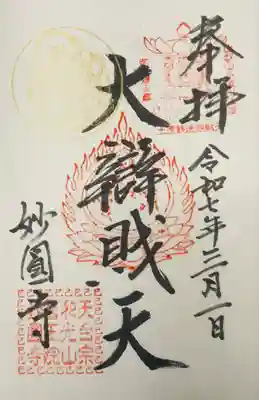 奉拝
令和七年三月一日
大辯財天
妙圓寺
天台宗
花光山